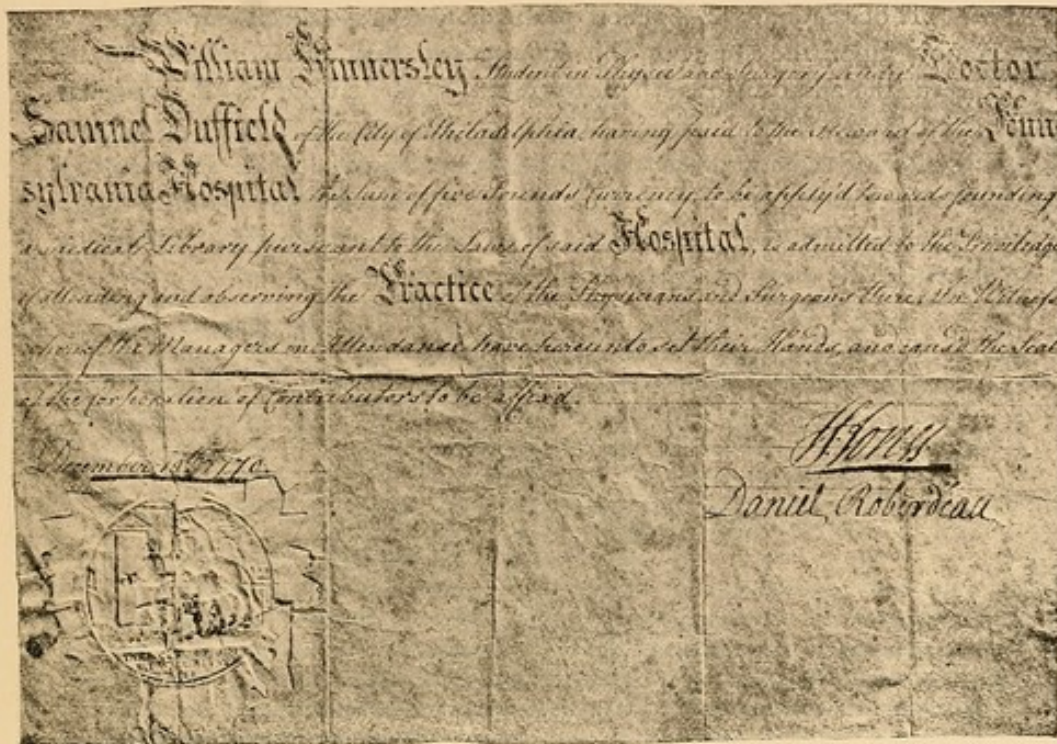 William Kinnersley Student in Physic and Surgery under Doctor
Samuel Duffield of the City of Philadelphia, having paid to the Steward of the Penn
sylvania Hospital the Sum of five Pounds Currency, to be apply'd towards founding
a medical Library pursuant to the Laws of said Hospital, is admitted to the Priviledge
of attending and observing the Practice of the Physicians and Surgeons there. In Witness
whereof the Managers in Attendance have hereunto set their Hands, and caused the Seal
of the corporation of Contributors to be affixed.
December 1770.
Daniel Roberdeau